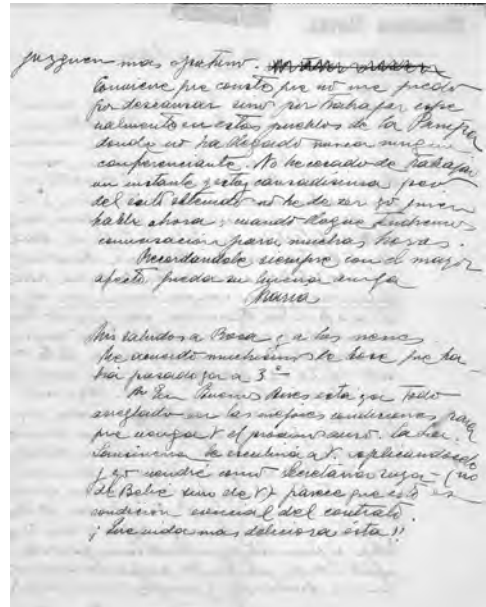 juzguen mas oportuno.
Conviene que conste que no me quedo
por descansar sino por trabajar espe
cialmente en estos pueblos de la Pampa
donde no ha llegado nunca ningun
conferenciante. No he cesado de trabajar
un instante y estoy cansadisima pero
del exito obtenido no he de ser yo quien
hable ahora; cuando llegue tendremos
conversacion para muchas horas.
Recordandole siempre con el mayor
afecto queda su buena amiga
Maria
Mis saludos a Rosa y a las nenas
Me acuerdo muchisimo de Rosa que ha-
bia pasado ya a 3ª
En Buenos Aires esta ya todo
arreglado en las mejores condiciones para
que venga V. el proximo año. La
le escribirá a V. explicandoselo
y yo vendré como Secretaria suya - (no
de Belié sino de V.) parece que esto es
condición esencial del contrato.
¡Que vida mas deliciosa ésta!!